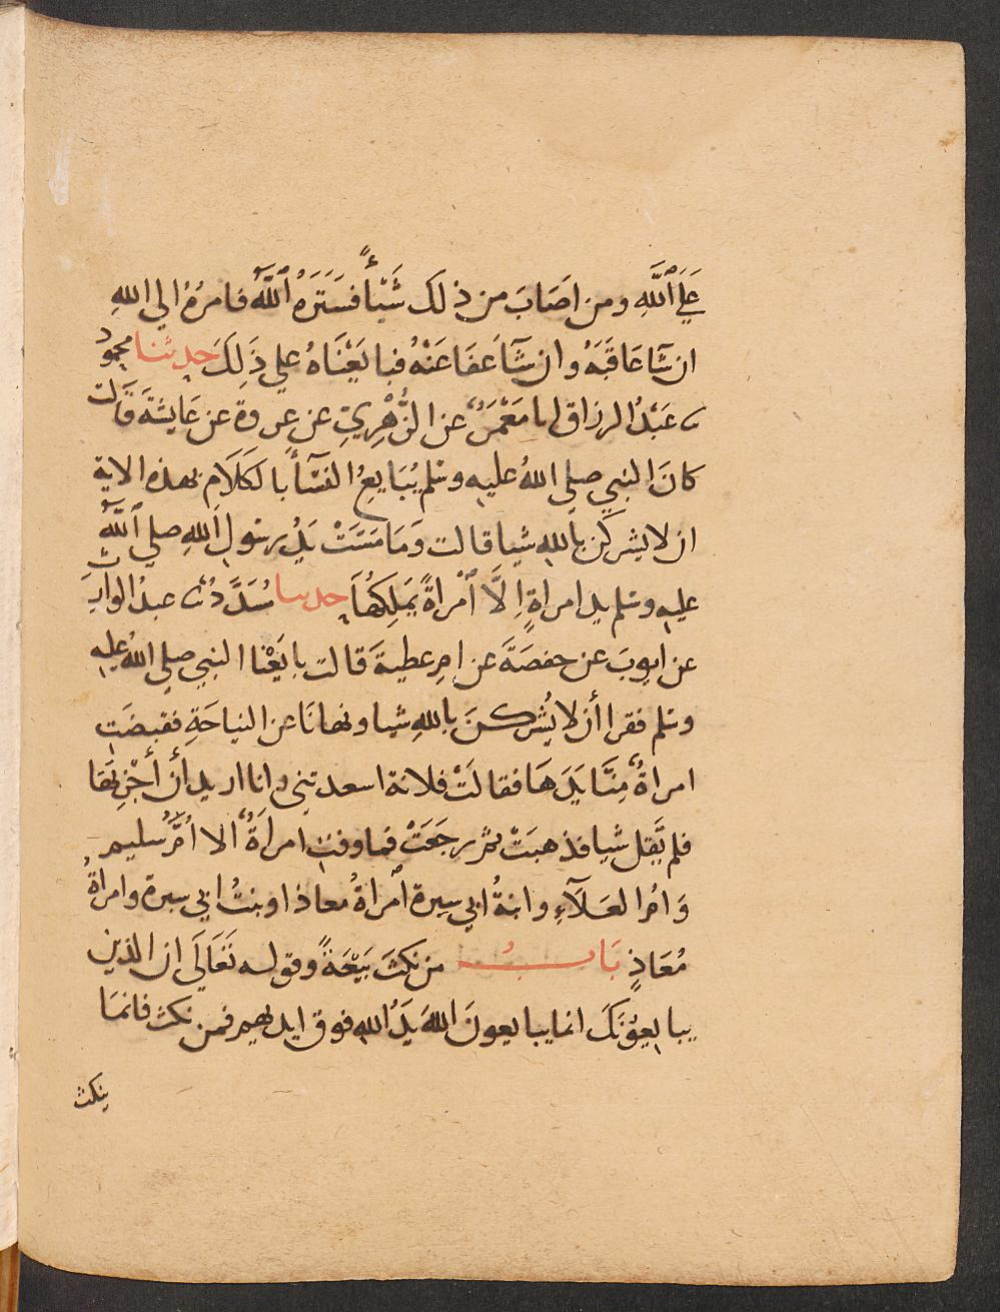 علي اللَّهِ ومن اصَابَ من ذلك شَيْأً فسَتَرَهُ اللَّهُ فامرُهُ الي اللهِ
ان شآ عَاقَبَهُ وان شآ عَفَا عَنْهُ فبايَعْنَاهُ علي ذَلِكَ حدثنا محمود
ثنا عَبْدُ الرزاق انا مَعْمَرٌ عن الزُّهْرِيِّ عن عروة عن عَايشَةَ قالت
كانَ النبي صلي اللهُ عليه وسلم يُبَايعُ النسَآ بالكَلَامِ بهذه الاية
ان لا يشركن باللهِ شيا قالت وَمَا مَسَتْ يَدُ رسُولِ اللهِ صلي اللَّهُ
عليه وسلم يد امراةٍ اِلَّا اَمْراةً يَمْلِكُهَا حدثنا مُسَدَّدٌ ثنا عبدُ الوارث
عن ايوبَ عن حفصَةَ عن امِ عطيةَ قالت بايَعْنا النبي صلي اللهُ عليه
وسلم فقرا أن لا يُشركنَ باللهِ شيا ونهانَا عن النياحَةِ فقبضَت
امراةٌ مِنَّا يَدَهَا فقالَتْ فلانة اسعدتني وانا اريد أن أجْزِيَهَا
فلم يَقل شيا فذهبَتْ ثم رجَعَتْ فما وفت امراَةٌ الا اُمُّ سُليم
وَامُ العَلَآءِ وابنةُ ابي سبرة اَمْراةُ معاذ او بنتُ ابي سبرة وامراةُ
مُعَاذٍ بَابُ من نكثَ بَيْعَةً وقوله تَعَالَي ان الذين
يبايعُونَكَ انما يبايعونَ اللهَ يَدُ اللهِ فوق ايديهم فمن نكث فانمَا
ينكث